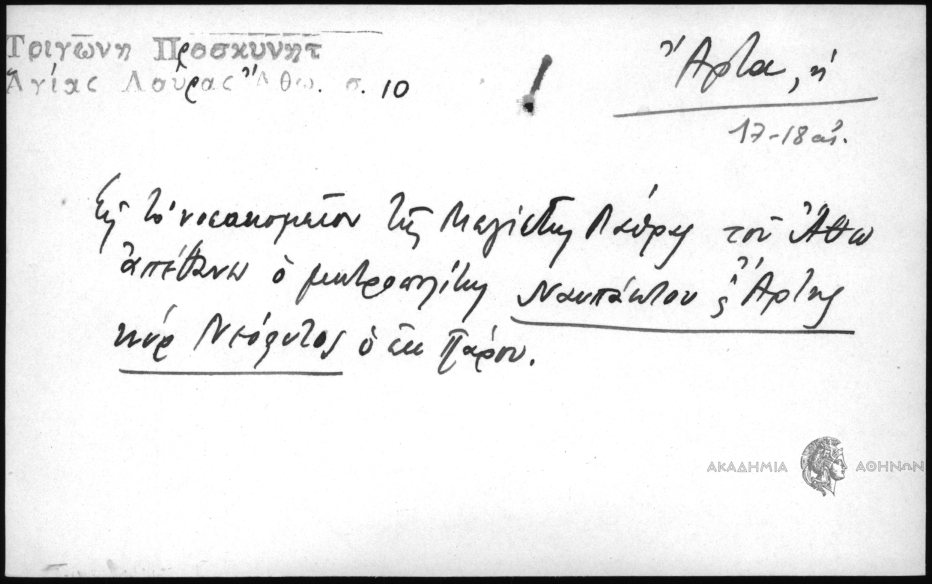 Τριγώνη Προσκυνητ
Ἁγίας Λαύρας Ἄθω. σ. 10
Ἄρτα, ἡ
17-18 αἰ.
Εἰς τὸ νοσοκομεῖον τῆς Μεγίστης Λαύρας τοῦ Ἄθω
ἀπέθανε ὁ μητροπολίτης Ναυπάκτου ϗ Ἄρτης
κύρ Νεόφυτος ὁ ἐκ Πάρου.
ΑΚΑΔΗΜΙΑ ΑΘΗΝΩΝ